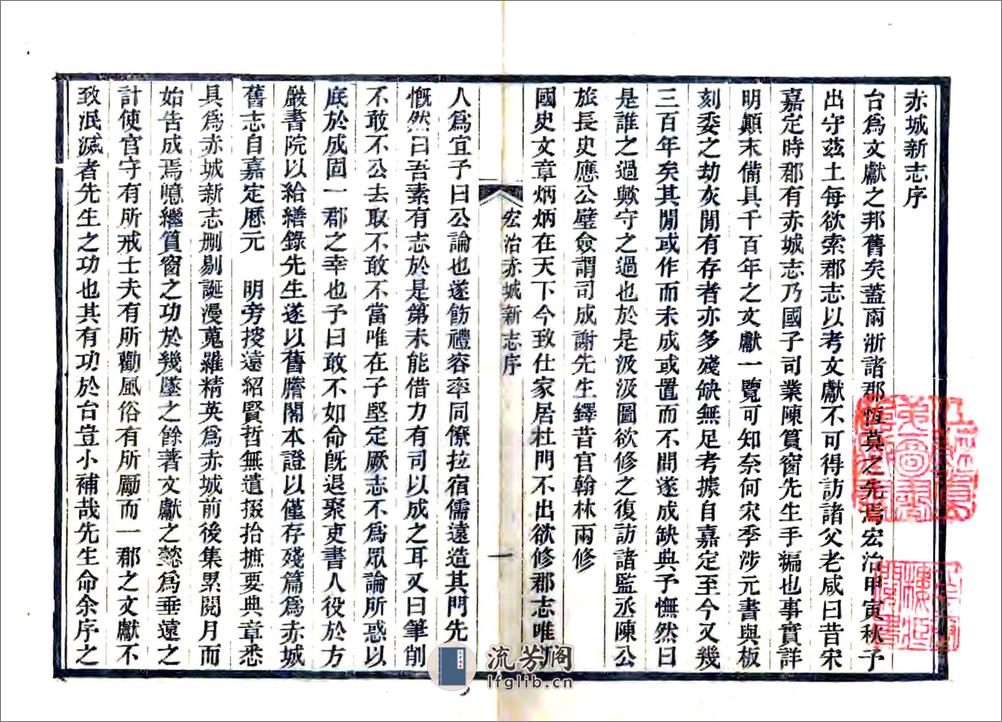 赤城新志序
台爲文獻之邦舊矣蓋兩浙諸郡恆莫之先焉宏治甲寅秋予
出守茲土每欲索郡志以考文獻不可得訪諸父老咸曰昔宋
嘉定時郡有赤城志乃國子司業陳篔窗先生手編也事實詳
明顛末備具千百年之文獻一覽可知奈何宋季涉元書與板
刻委之劫灰閒有存者亦多殘缺無足考據自嘉定至今又幾
三百年矣其閒或作而未成或置而不問遂成缺典予憮然曰
是誰之過歟守之過也於是汲汲圖欲修之復訪諸監丞陳公
旅長史應公璧僉謂司成謝先生鐸昔官翰林兩修
國史文章炳炳在天下今致仕家居杜門不出欲修郡志唯
宏治赤城新志序
一
人爲宜予曰公論也遂飭禮容率同僚拉宿儒遠造其門先
慨然曰吾素有志於是第未能借力有司以成之耳又曰筆削
不敢不公去取不敢不當唯在子堅定厥志不爲眾論所惑以
底於成固一郡之幸也予曰敢不如命旣退聚吏書人役於方
巖書院以給繕錄先生遂以舊謄閣本證以僅存殘篇爲赤城
舊志自嘉定歷元 明旁搜遠紹賢哲無遺掇拾摭要典章悉
具爲赤城新志删剔誕漫蒐羅精英爲赤城前後集累閱月而
始吿成焉噫繼篔窗之功於幾墜之餘著文獻之懿爲垂遠之
計使官守有所戒士夫有所勸風俗有所勵而一郡之文獻不
致泯滅者先生之功也其有功於台豈小補哉先生命余序之
流芳阁
lfglib.cn